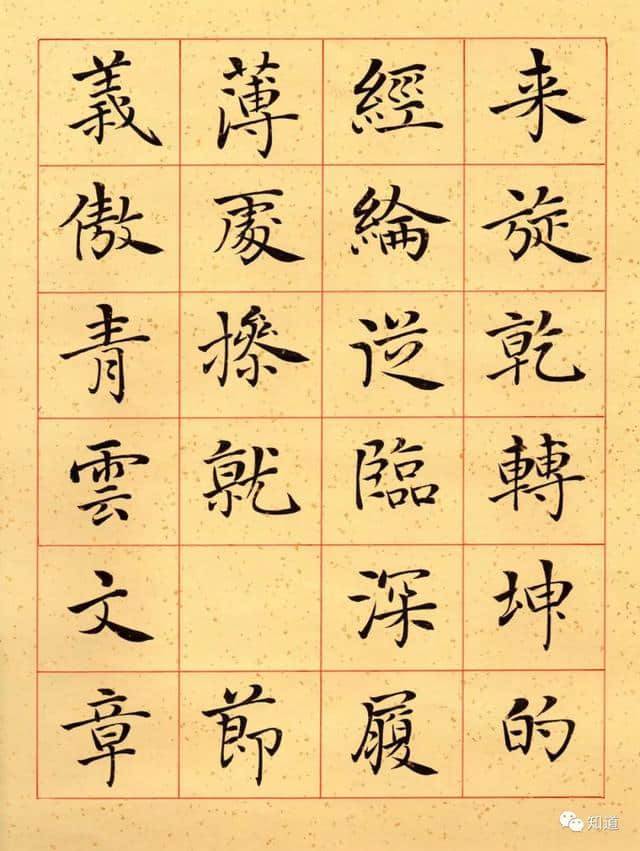 来旋乾轉坤的
經綸從臨深履
薄處操就 節
義傲青雲文章
知道